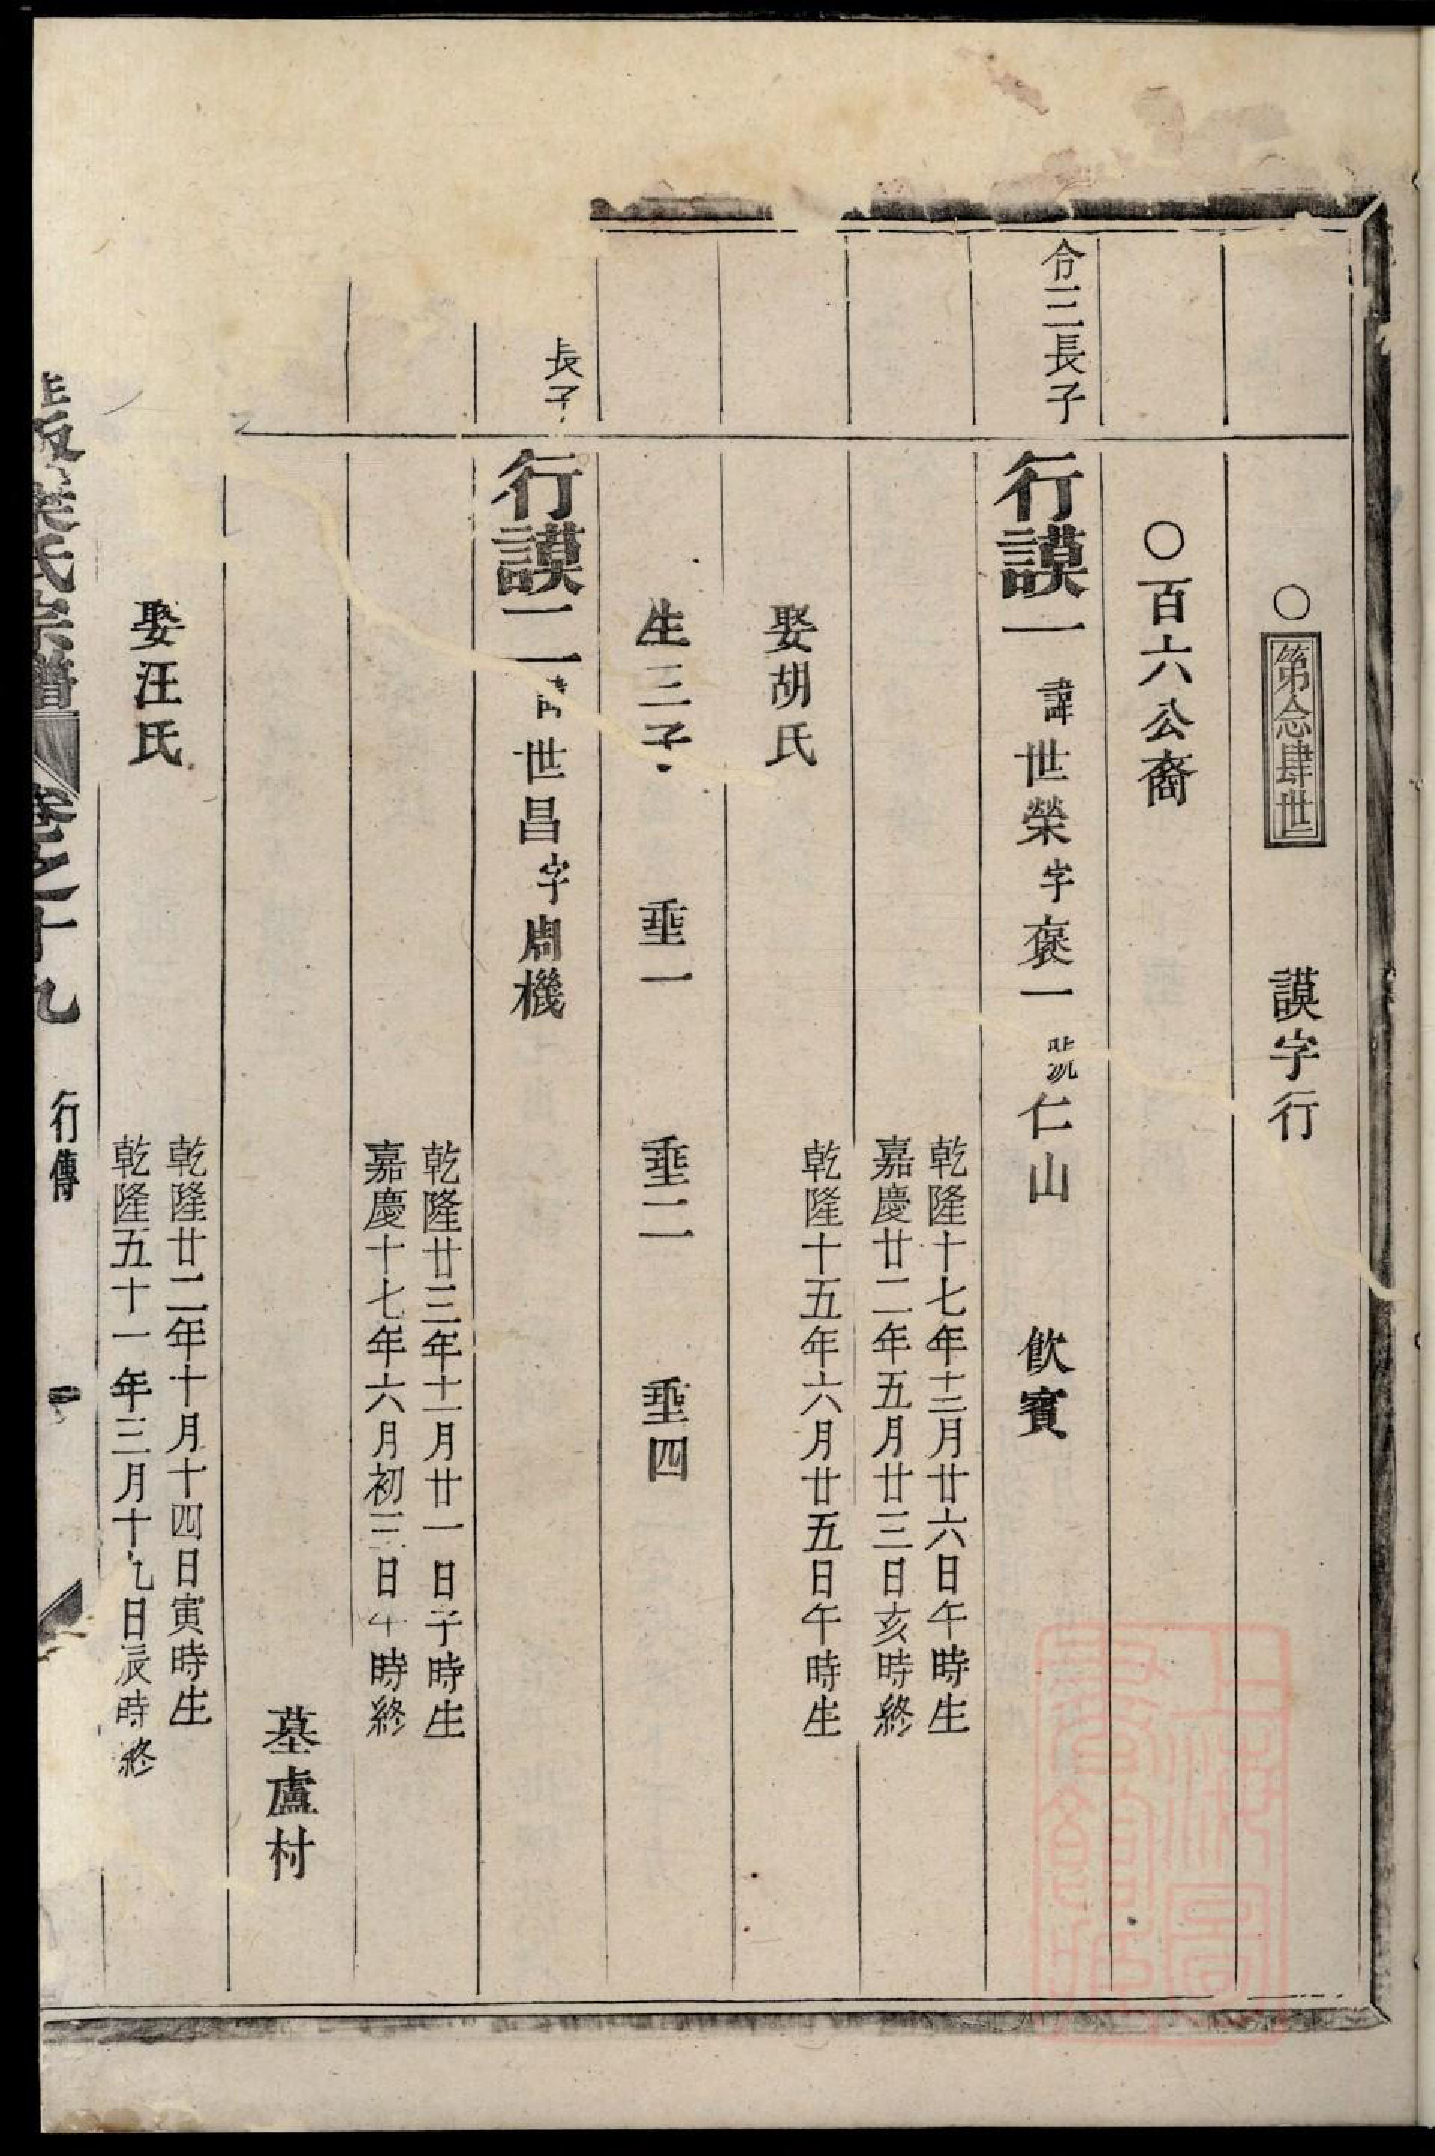 ○第念肆世 謨字行
○百六公裔
令三長子
行謨一 諱世榮字褒一號仁山 飲賓
乾隆十七年十二月廿六日午時生
嘉慶廿二年五月廿三日亥時終
娶胡氏
乾隆十五年六月廿五日午時生
生三子 垂一 垂二 垂四
長子
行謨二 諱世昌字周機
乾隆廿三年十一月廿一日子時生
嘉慶十七年六月初三日午時終
墓盧村
娶汪氏
乾隆廿二年十月十四日寅時生
乾隆五十一年三月十九日辰時終
氏宗譜 卷之十九 行傳 一
上海圖書館藏